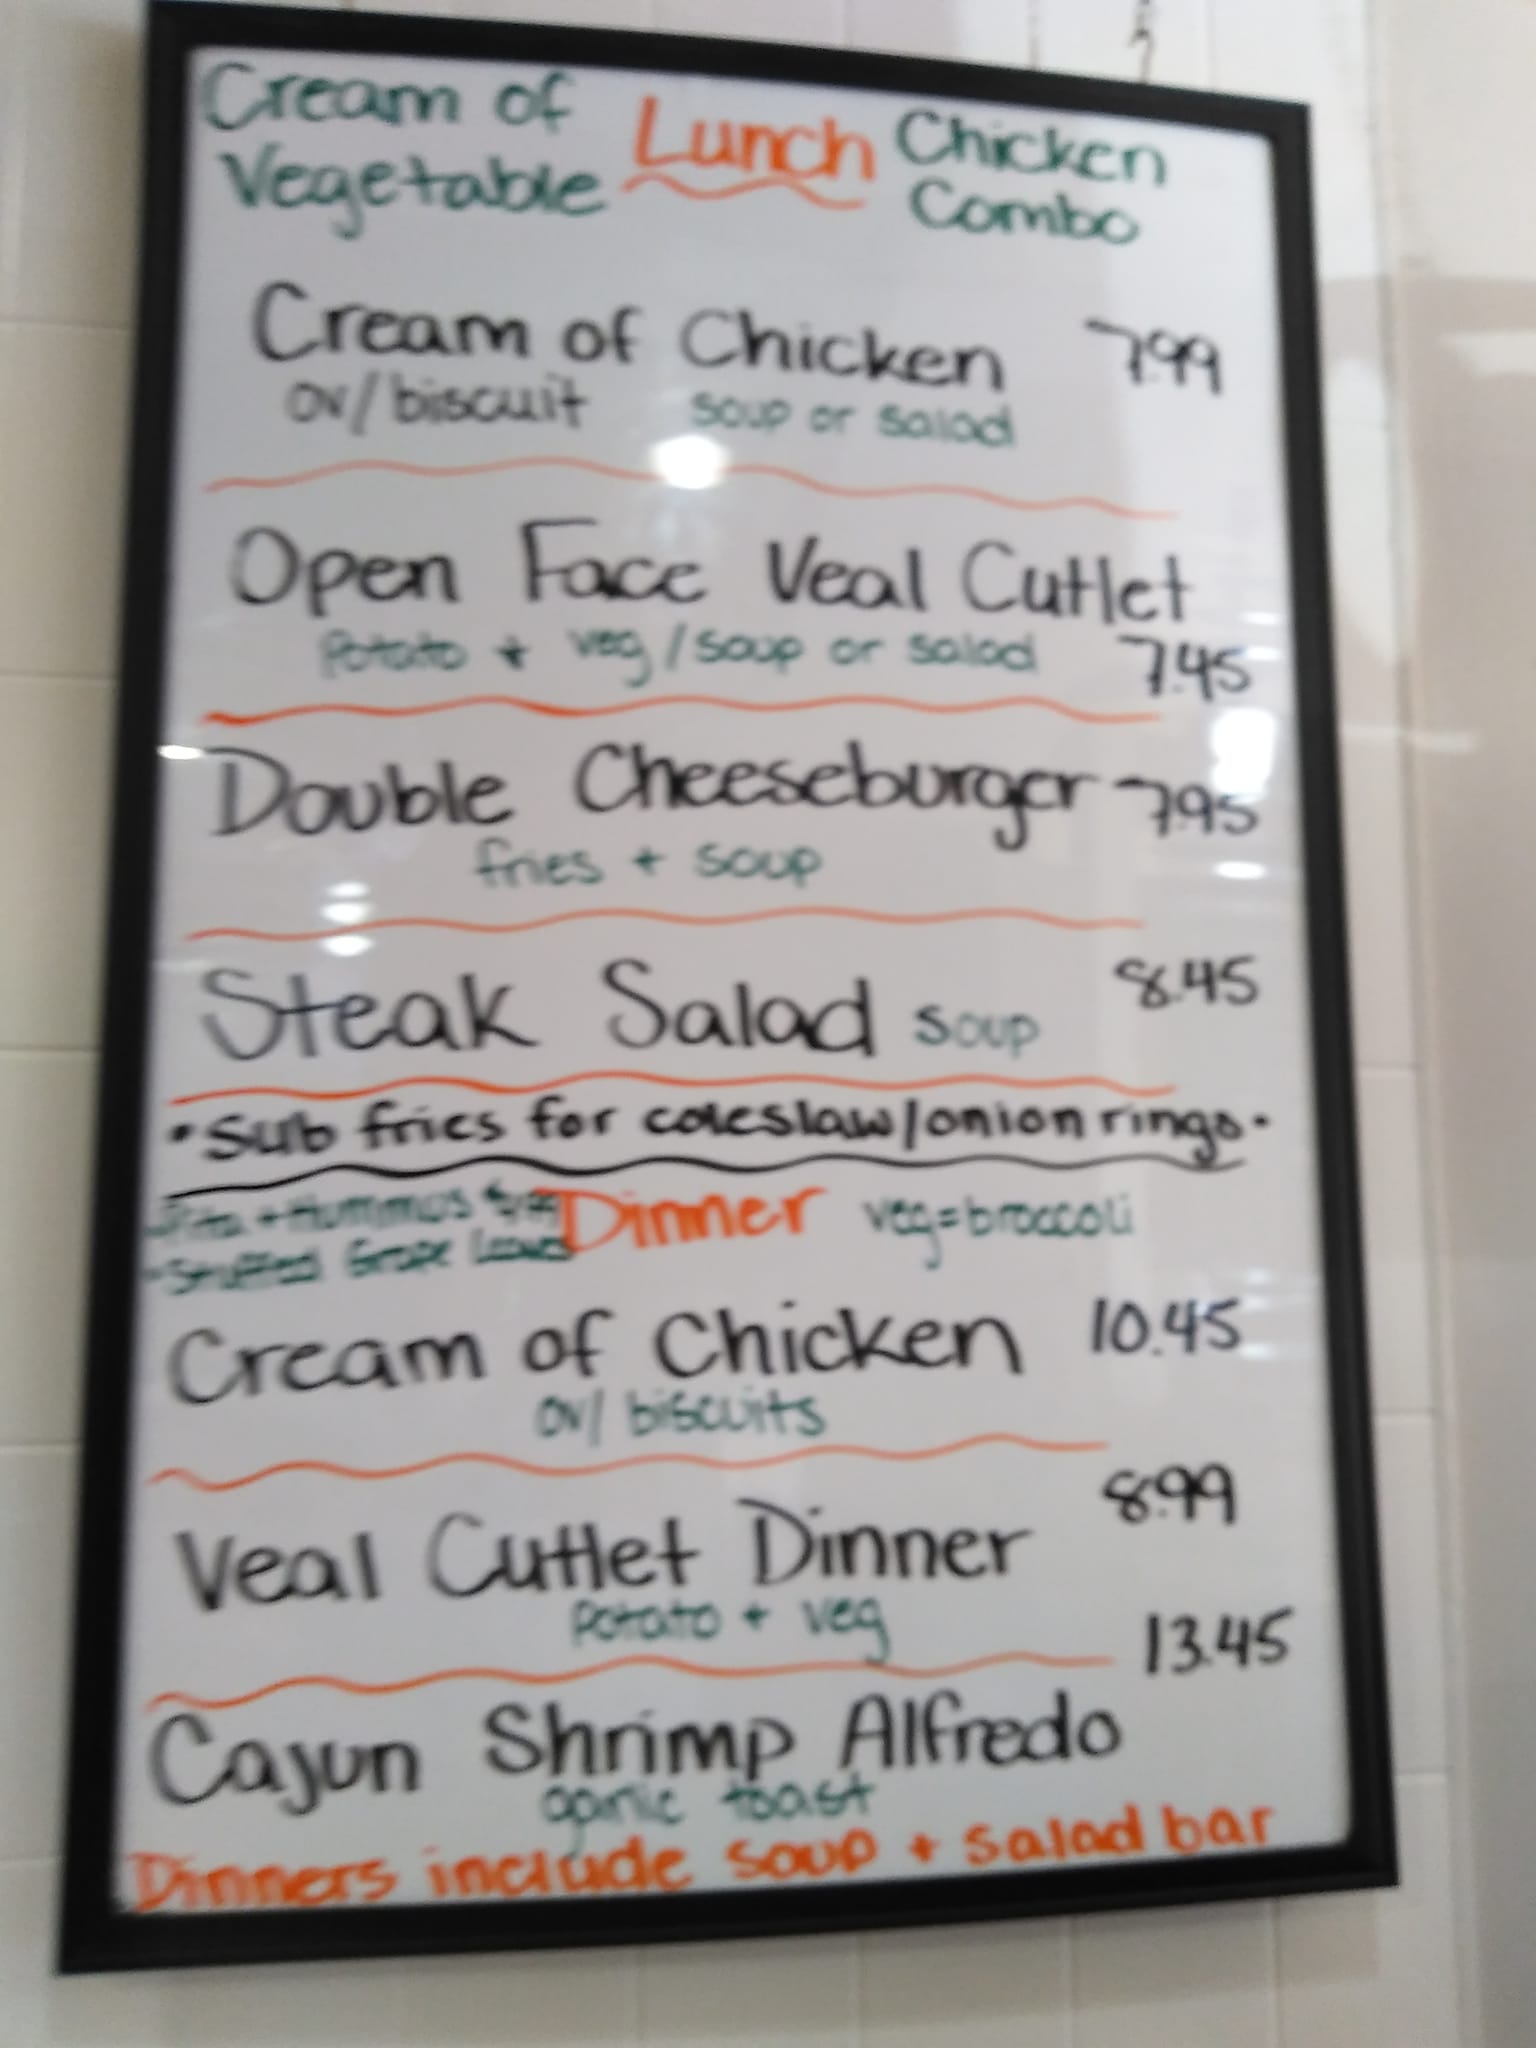 Cream of Vegetable
Lunch
Chicken Combo
Cream of Chicken 7.99
ov/biscuit soup or salad
Open Face Veal Cutlet
Potato + veg/soup or salad 7.45
Double Cheeseburger 7.95
fries + soup
Steak Salad soup 8.45
• Sub fries for coleslaw/onion rings •
-Pita + Hummus
-Stuffed Grape Leaves
Dinner veg=broccoli
Cream of Chicken 10.45
ov/ biscuits
8.99
Veal Cutlet Dinner
Potato + veg
13.45
Cajun Shrimp Alfredo
garlic toast
Dinners include soup + salad bar